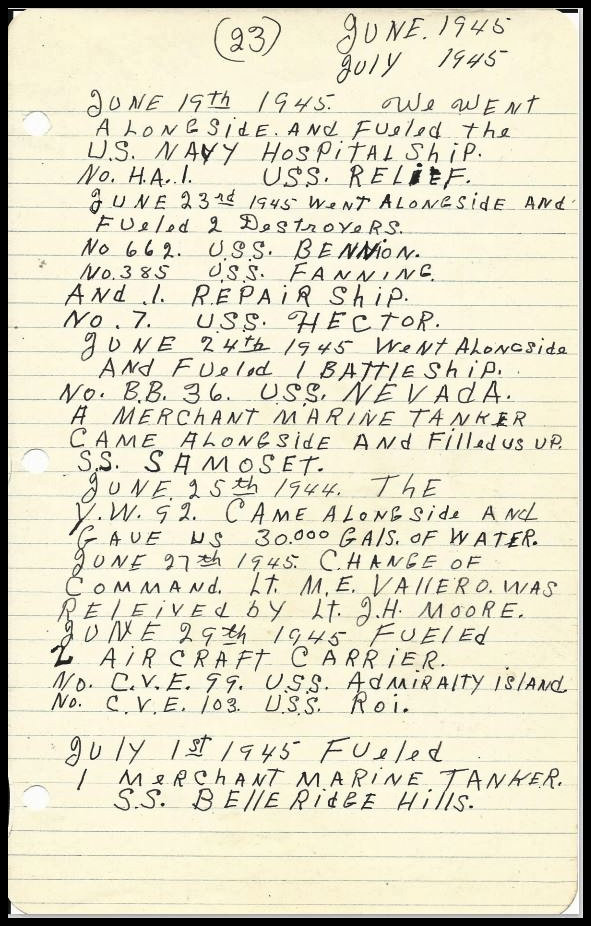 (23) JUNE. 1945
JULY 1945
JUNE 19th 1945. We WENT
ALONGSide. AND FUeled the
U.S. NAVY HOSPITAL ShiP.
No. H.A. 1. USS. RELIEF.
JUNE 23rd 1945 WeNT ALONGSIdE AND
FUeled 2 DestroyeRS.
No 662. U.S.S. BENNION.
No. 385 U.S.S. FANNING.
ANd .1. REPAIR ShiP.
No. 7. USS. HECTOR.
JUNE 24th 1945 WeNT ALONGSide
ANd FUeled 1 BATTLEShiP.
No. B.B. 36. USS. NEVAdA.
A MERCHANT MARINE TANKER
CAME ALONGSIdE ANd Filled us UP.
SS. SAMOSET.
JUNE 25th 1944. THE
Y.W. 92. CAME ALONGSide ANd
GAVE US 30.000 GAlS. OF WATER.
JUNE 27th 1945. CHANGE OF
COMMANd. LT. M.E. VALLERO. WAS
RELEIVEd bY LT. J.H. MOORE.
JUNE 29th 1945 FUELEd
2 AIRCRAFT CARRiER.
No. C.V.E. 99. U.S.S. AdMIRALTY iSlANd.
No. C.V.E. 103. U.S.S. Roi.
JUlY 1st 1945 FUeled
1 MeRCHANT MARINE TANKER.
S.S. BElle RidGE Hills.